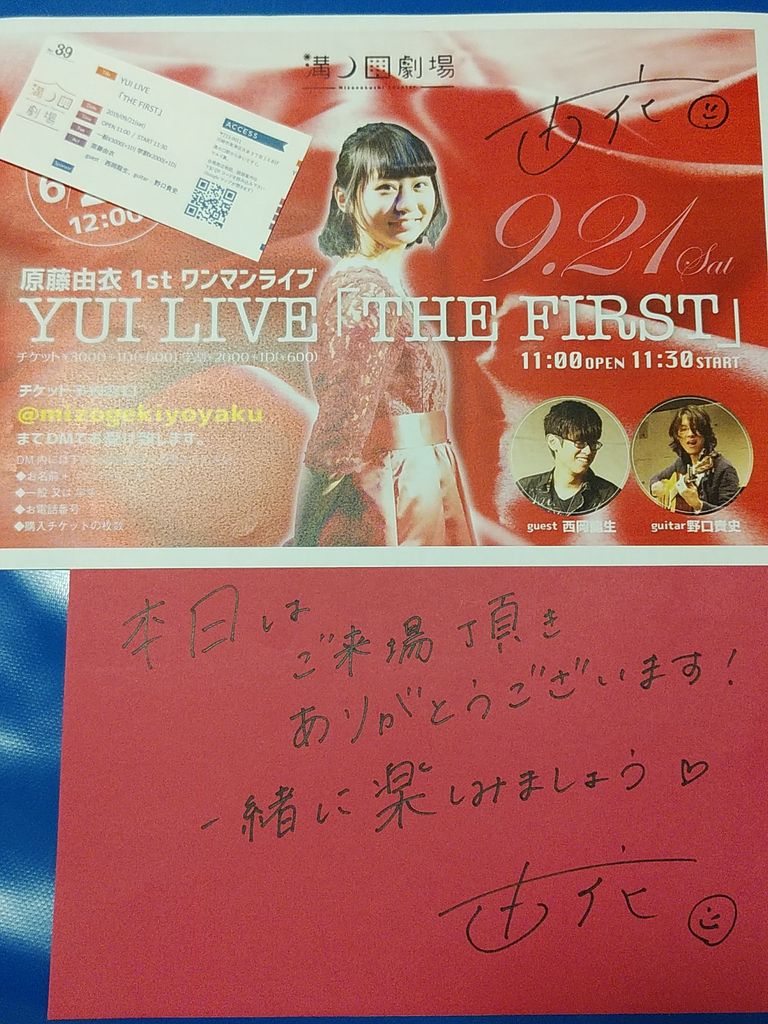 溝ノ口劇場
Mizonokuchi theater
No. 39
溝ノ口
劇場
YUI LIVE
「THE FIRST」
2019/09/21(sat)
OPEN 11:00 / START 11:30
一般¥3000(+1D) 学割¥2000(+1D)
原藤由衣
guest 西岡龍生, guitar 野口貴史
ACCESS
由衣
12:00
9.21 Sat
原藤由衣 1st ワンマンライブ
YUI LIVE「THE FIRST」
チケット¥3000+1D(¥600) 学割¥2000+1D(¥600)
11:00 OPEN 11:30 START
チケット予約は
@mizogekiyoyaku
までDMでお受け致します。
◆お名前
◆一般 又は 学生
◆お電話番号
◆購入チケットの枚数
guest 西岡龍生
guitar 野口貴史
本日は
ご来場頂き
ありがとうございます!
一緒に楽しみましょう♡
由衣